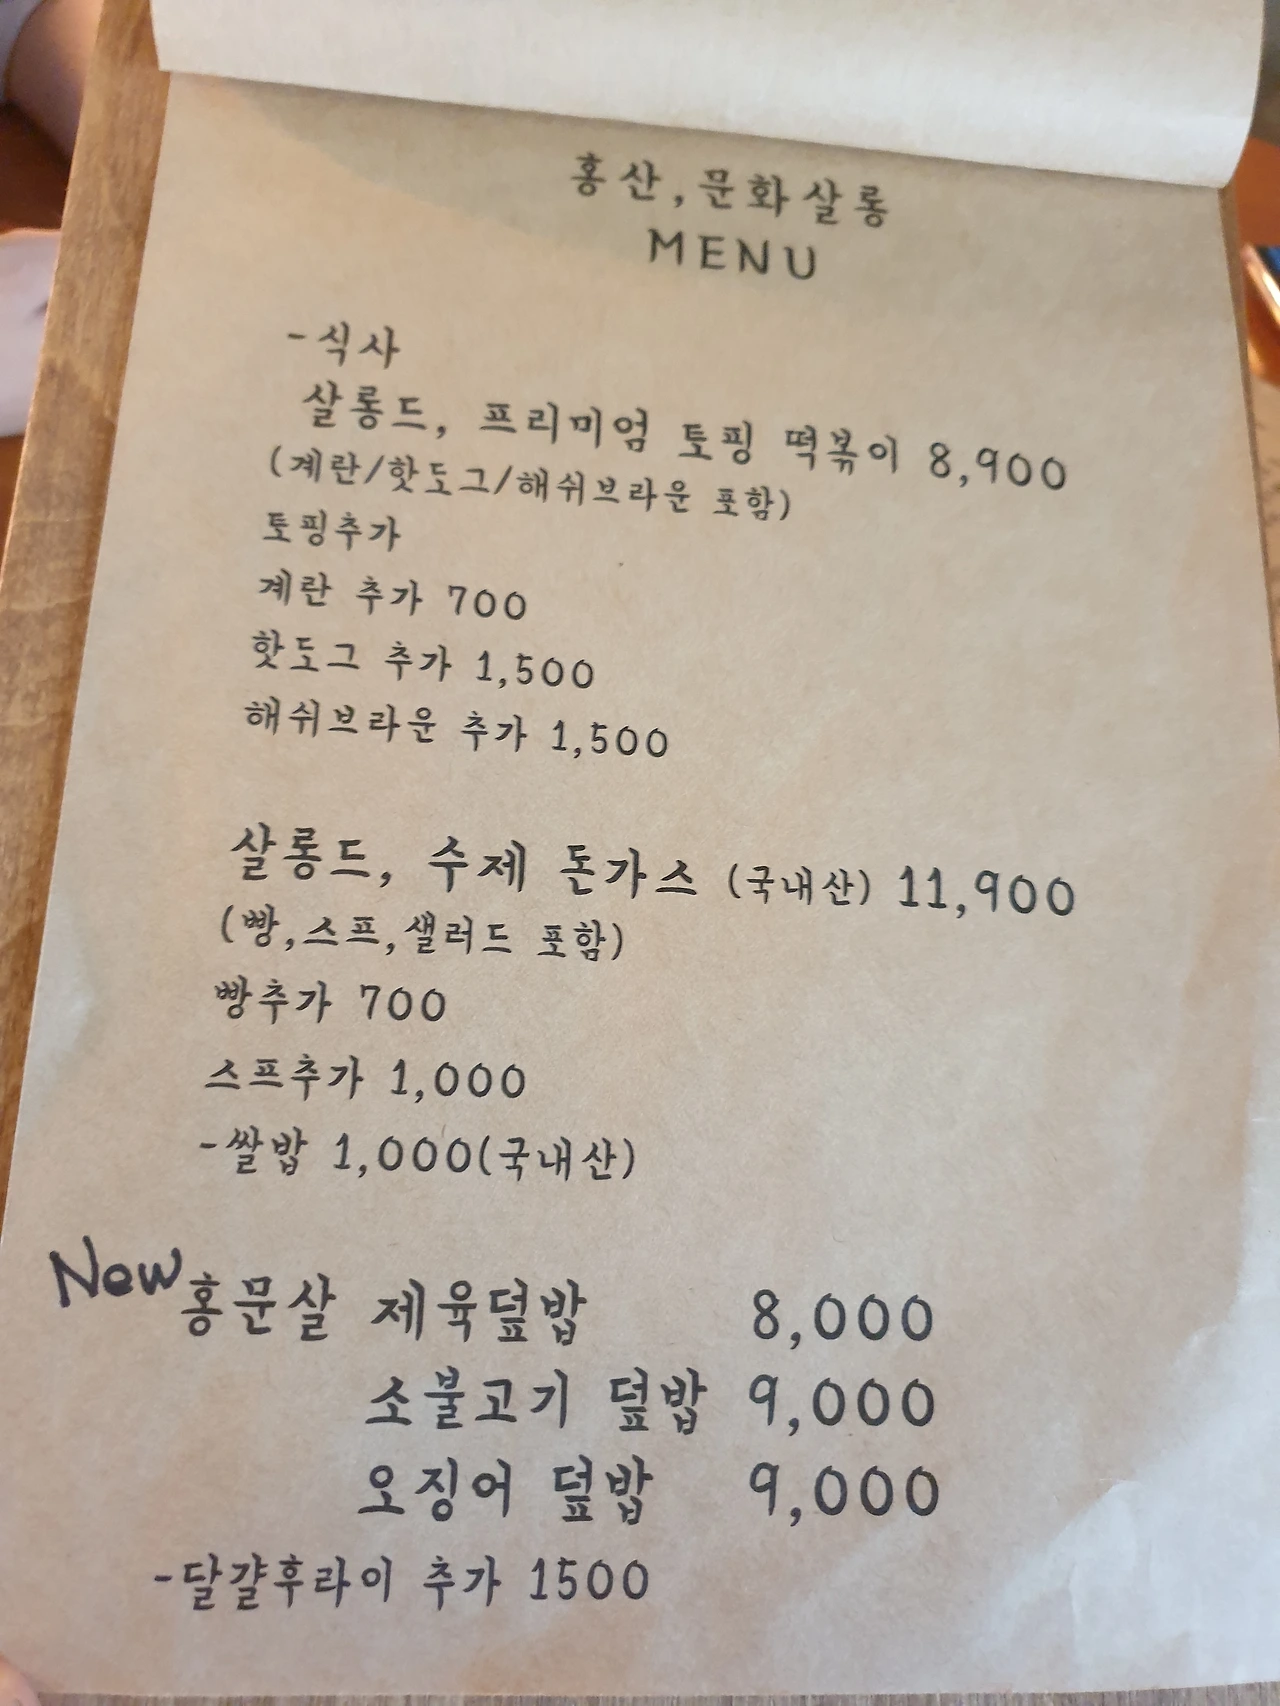 홍산,문화살롱
MENU
-식사
살롱드, 프리미엄 토핑 떡볶이 8,900
(계란/핫도그/해쉬브라운 포함)
토핑추가
계란 추가 700
핫도그 추가 1,500
해쉬브라운 추가 1,500
살롱드, 수제 돈가스 (국내산) 11,900
(빵,스프,샐러드 포함)
빵추가 700
스프추가 1,000
-쌀밥 1,000(국내산)
New 홍문살 제육덮밥 8,000
소불고기 덮밥 9,000
오징어 덮밥 9,000
-달걀후라이 추가 1500